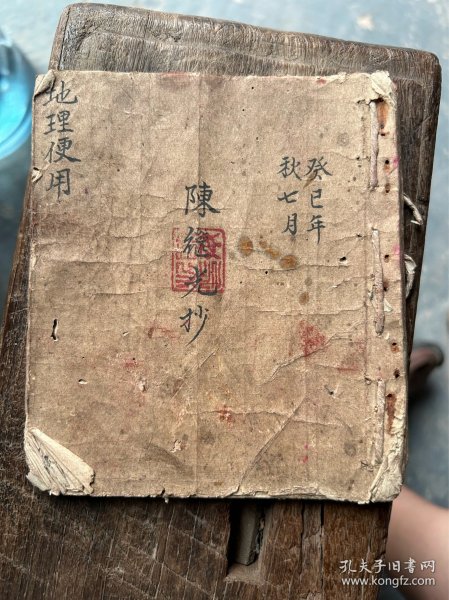 癸巳年
秋七月
陳總光抄
地理便用
孔夫子旧书网
www.kongfz.com